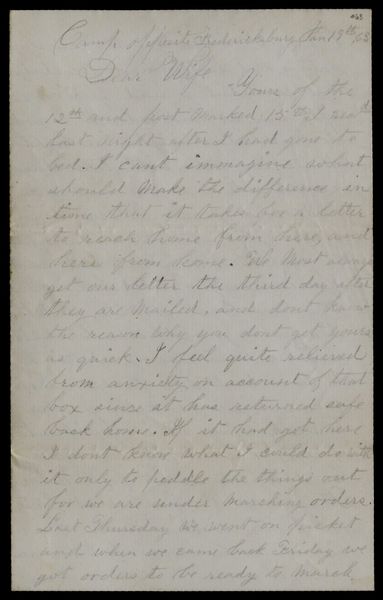 Camp opposite Fredericksburg Jan 19th /63
Dear Wife
Yours of the
12th and post marked 15th I read
last night after I had gone to
bed. I cant immagine what
should make the difference in
time that it takes for a letter
to reach home from here, and
here from home. We most always
get our letter the third day after
they are mailed, and dont know
the reason why you dont get yours
as quick. I feel quite relieved
from anxiety on account of that
box since it has returned safe
back home. If it had got here
I dont know what I could do with
it only to peddle the things out
for we are under marching orders.
Last Thursday we went on picket
and when we came back Friday we
got orders to be ready to march